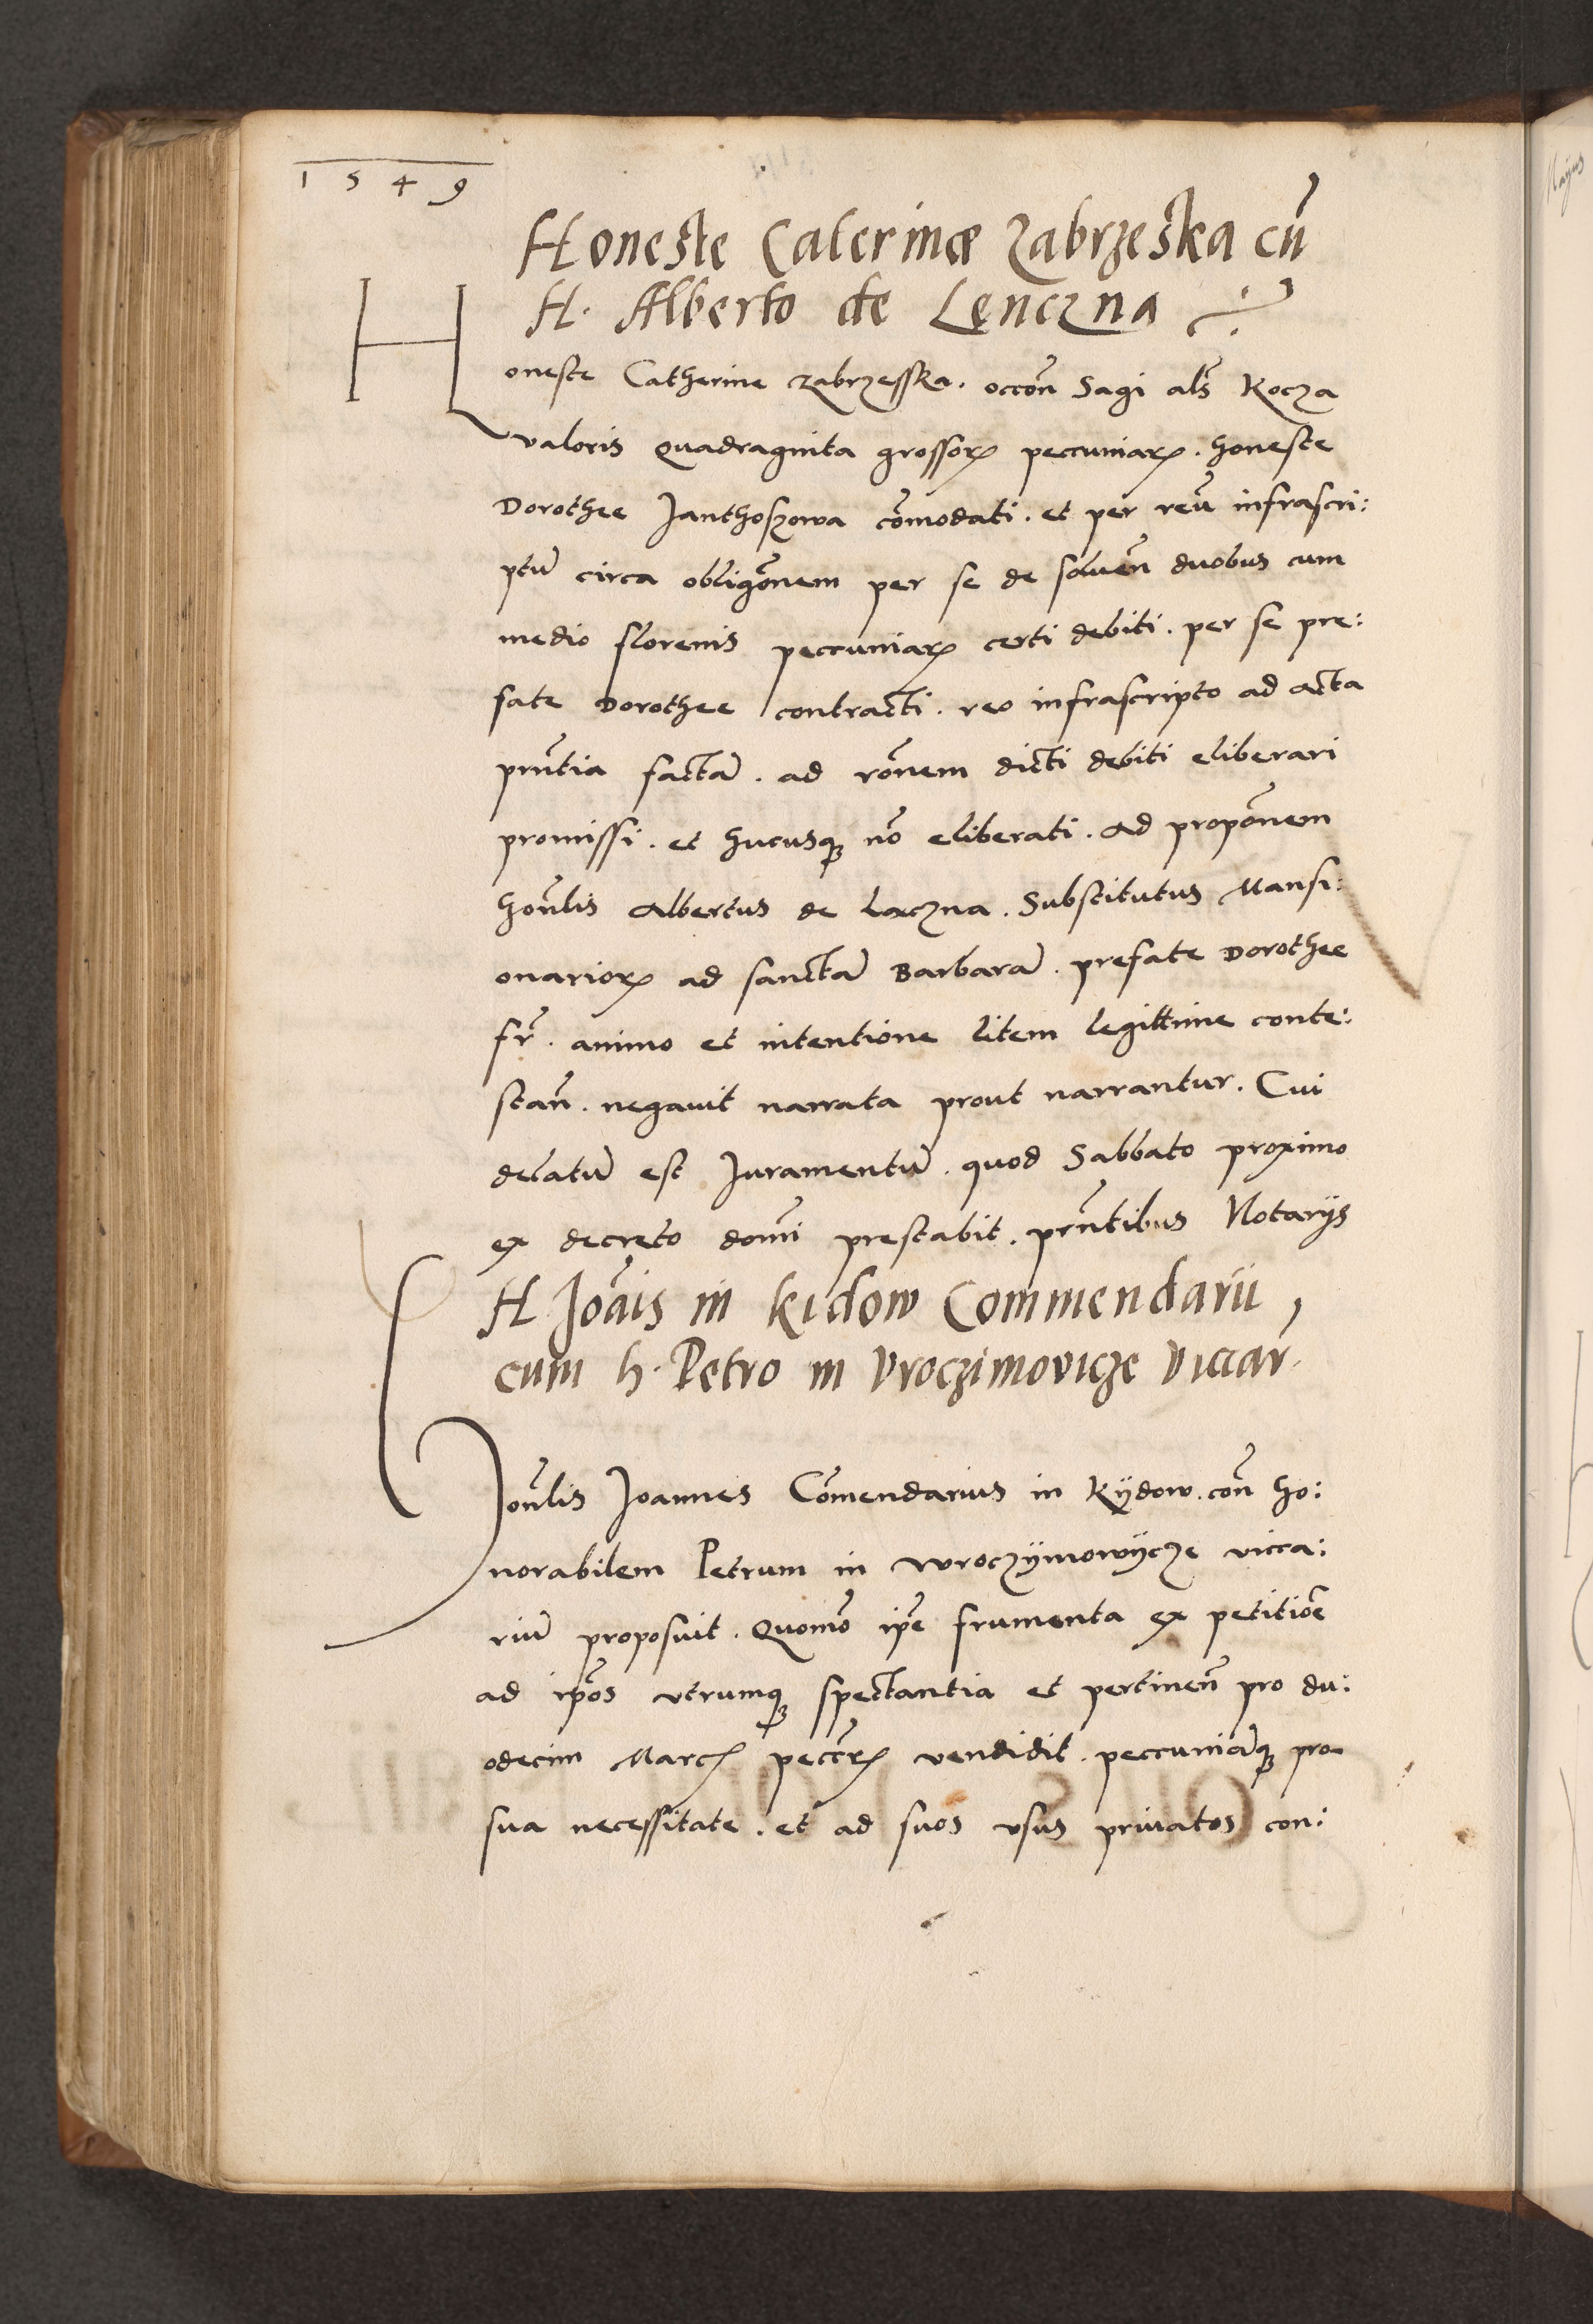 1549
Honeste Caterinæ Zabrzeska cū
H. Alberto de Lęnczna
Honeste Catherine Zabrzesska. occōn Sagi als̄ Kocza
valoris Quadraginta grossorꝝ peccuniarꝝ. Honeste
Dorothee Janthoszowa cōmodati. et per reū infrascri:
ptū circa obligōnem per se de soluen̄ duobus cum
medio florenis peccuniarꝝ certi debiti. per se pre:
fate Dorothee contracti. reo infrascripto ad acta
prn̄tia factā. ad rōnem dicti debiti eliberari
promissi. et hucusqꝫ nō eliberati. Ad propōnem
honr̄lis Albertus de Laczna. Substitutus Mansi:
onariorꝝ ad sanctā Barbarā. prefate Dorothee
fr̄. animo et intentione litem legittime conte:
stan̄. negauit narrata prout narrantur. Cui
delatū est Juramentū. quod Sabbato proximo
ex decreto domī prestabit. prn̄tibus Notarijs
H. Joāis in Kidow Commendarii,
cum h. Petro in Vroczimovicze Viccar.
Honr̄lis Joannes Cōmendarius in Kÿdow. con̄ Ho:
norabilem Petrum in Wroczÿmowÿcze vicca:
riū proposuit. Quomō ip̄e frumenta ex petitiōe
ad ip̄os vtrumqꝫ spectantia et pertinen̄ pro du:
odecim Marcꝝ pecc̄rꝝ vendidit. peccuniāqꝫ pro
sua necessitate. et ad suos vsus priuatos con: